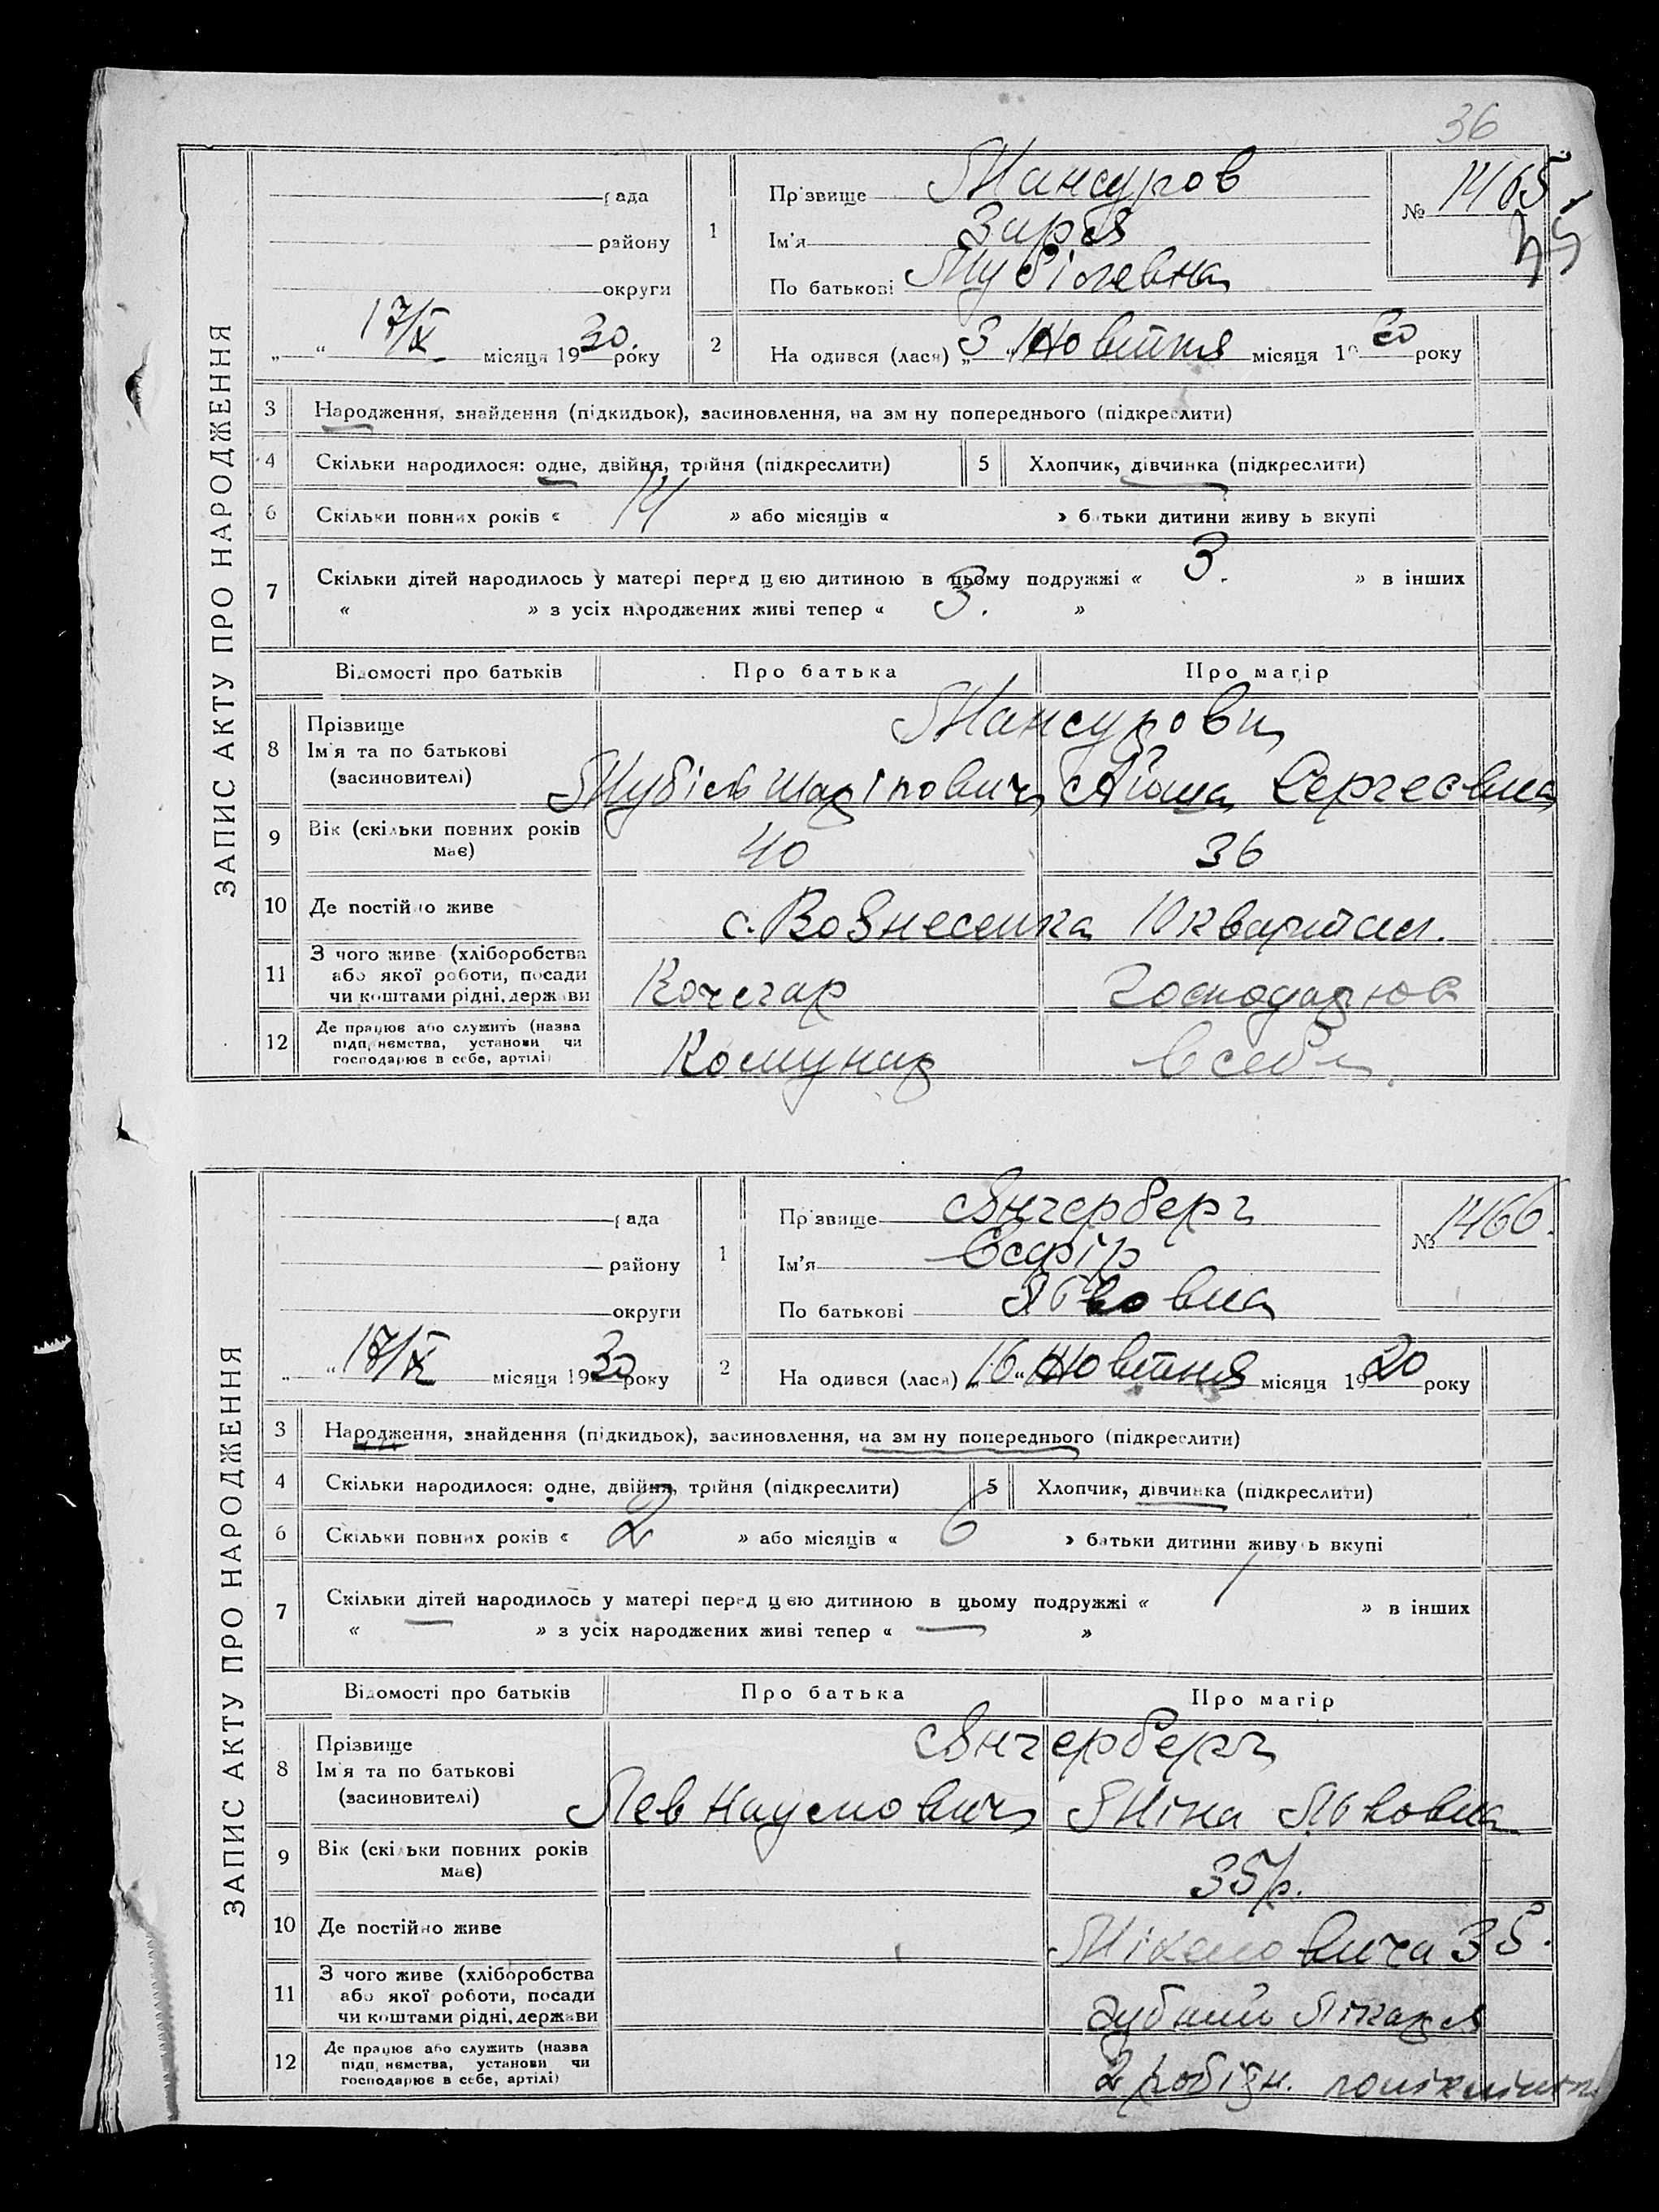 36
ЗАПИС АКТУ ПРО НАРОДЖЕННЯ
рада
району
округи
„ “ 17/X місяця 1930. року
1
Прізвище Мансуров
Ім'я
По батькові
№ 1465
2
На одився (лася) „3“ Жовтня місяця 19 30 року
3 Народження, знайдення (підкидьок), засиновлення, на зм ну попереднього (підкреслити)
4 Скільки народилося: одне, двійня, трійня (підкреслити) 5 Хлопчик, дівчинка (підкреслити)
6 Скільки повних років « 14 » або місяців « » батьки дитини живу ь вкупі
7 Скільки дітей народилось у матері перед цією дитиною в цьому подружжі « 3. » в інших
« » з усіх народжених живі тепер « 3. »
Відомості про батьків Про батька Про матір
8 Прізвище
Ім'я та по батькові
(засиновителі)
Мансурови
Сергеевна
9 Вік (скільки повних років має) 40 36
10 Де постійно живе с. Вознесенка 10 квартал.
11 З чого живе (хліборобства або якої роботи, посади чи коштами рідні, держави Кочегар Господарює
12 Де працює або служить (назва підп иємства, установи чи господарює в себе, артілі) Комунар в себе
ЗАПИС АКТУ ПРО НАРОДЖЕННЯ
рада
району
округи
„ “ 17/X місяця 1930 року
1
Прізвище Янгерберг
Ім'я Есфір
По батькові
№ 1466.
2
На одився (лася) „16“ Жовтня місяця 1920 року
3 Народження, знайдення (підкидьок), засиновлення, на зм ну попереднього (підкреслити)
4 Скільки народилося: одне, двійня, трійня (підкреслити) 5 Хлопчик, дівчинка (підкреслити)
6 Скільки повних років « 2 » або місяців « 6 » батьки дитини живу ь вкупі
7 Скільки дітей народилось у матері перед цією дитиною в цьому подружжі « 1 » в інших
« — » з усіх народжених живі тепер « — »
Відомості про батьків Про батька Про матір
8 Прізвище
Ім'я та по батькові
(засиновителі)
Янгерберг
Лев Наумович Яківовна
9 Вік (скільки повних років має) 35 р.
10 Де постійно живе 35.
11 З чого живе (хліборобства або якої роботи, посади чи коштами рідні, держави зубний лікарь
12 Де працює або служить (назва підп иємства, установи чи господарює в себе, артілі) 2 робідн. полікліника